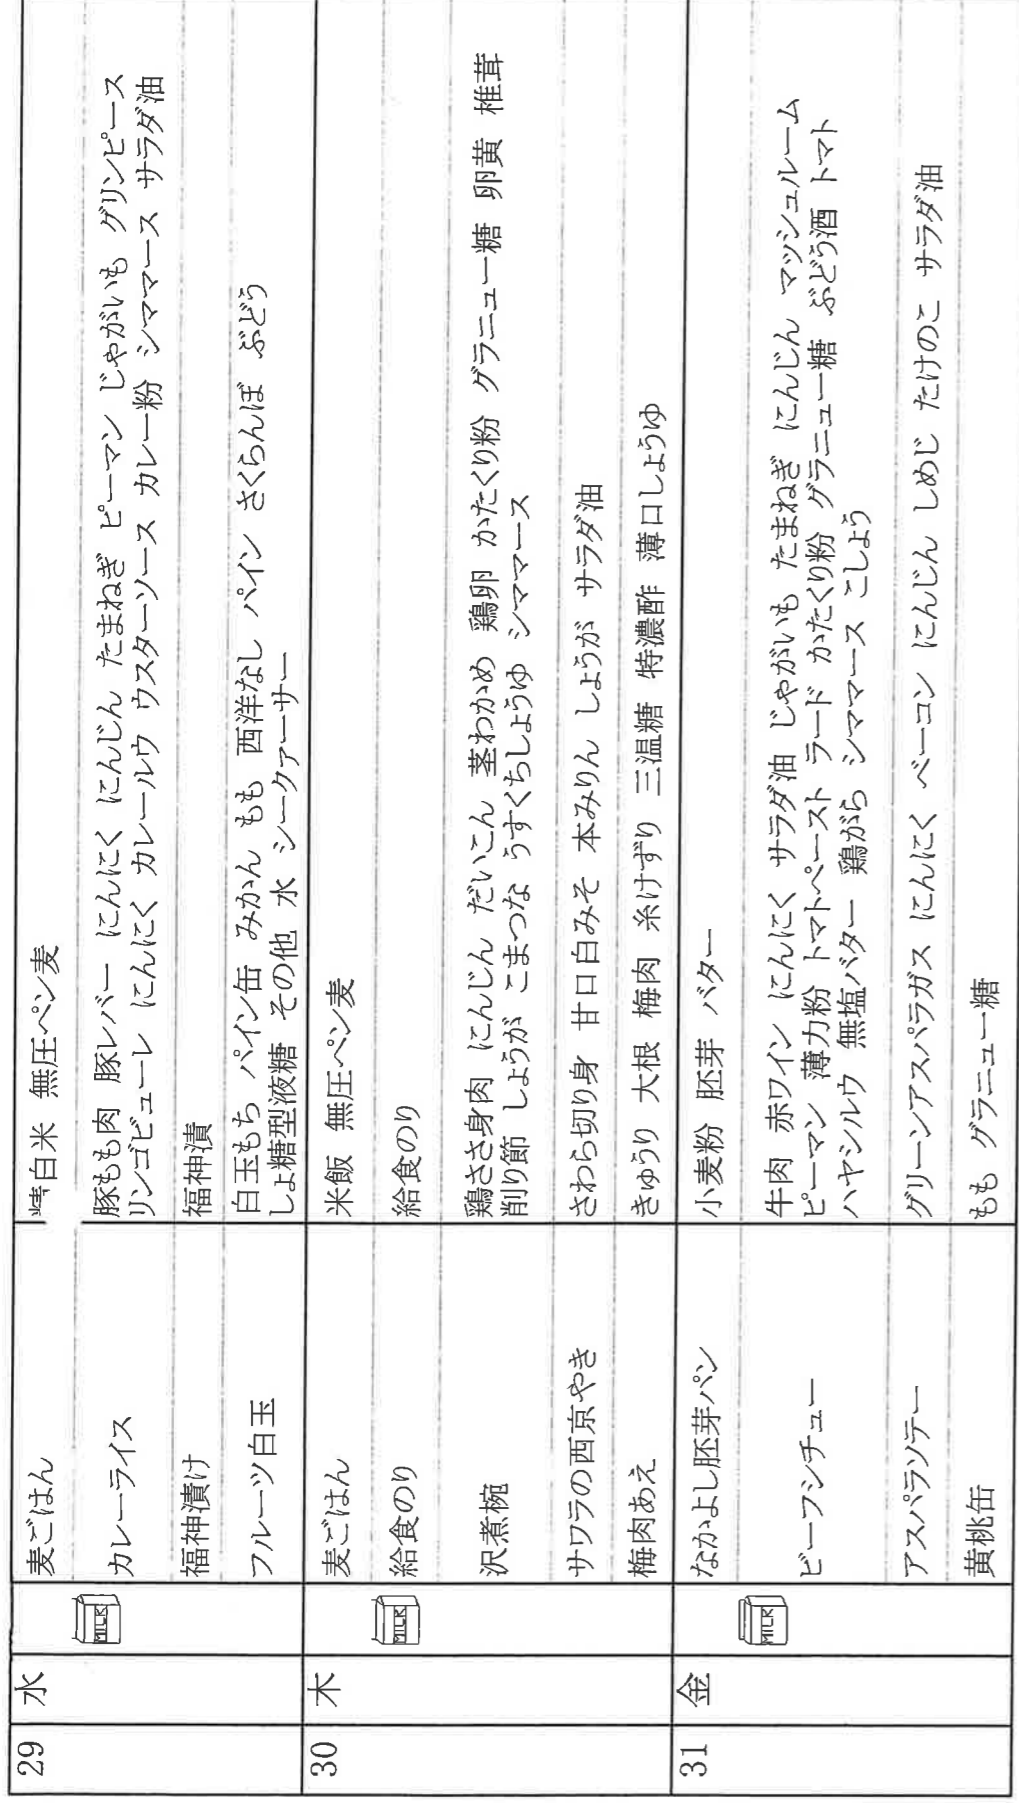 29 水 MILK 麦ごはん 精白米 無圧ペン麦
カレーライス 豚もも肉 豚レバー にんにく にんじん たまねぎ ピーマン じゃがいも グリンピース
リンゴピューレ にんにく カレールウ ウスターソース カレー粉 シママース サラダ油
福神漬け 福神漬
フルーツ白玉 白玉もち パイン缶 みかん もも 西洋なし パイン さくらんぼ ぶどう
しょ糖型液糖 その他 水 シークァーサー
30 木 MILK 麦ごはん 米飯 無圧ペン麦
給食のり 給食のり
沢煮椀 鶏ささ身肉 にんじん だいこん 茎わかめ 鶏卵 かたくり粉 グラニュー糖 卵黄 椎茸
削り節 しょうが こまつな うすくちしょうゆ シママース
サワラの西京やき さわら切り身 甘口白みそ 本みりん しょうが サラダ油
梅肉あえ きゅうり 大根 梅肉 糸けずり 三温糖 特濃酢 薄口しょうゆ
31 金 MILK なかよし胚芽パン 小麦粉 胚芽 バター
ビーフシチュー 牛肉 赤ワイン にんにく サラダ油 じゃがいも たまねぎ にんじん マッシュルーム
ピーマン 薄力粉 トマトペースト ラード かたくり粉 グラニュー糖 ぶどう酒 トマト
ハヤシルウ 無塩バター 鶏がら シママース こしょう
アスパラソテー グリーンアスパラガス にんにく ベーコン にんじん しめじ たけのこ サラダ油
黄桃缶 もも グラニュー糖